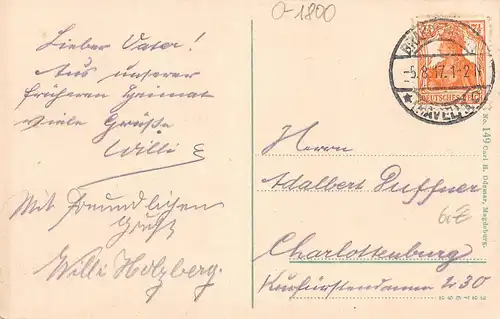 O-1800
Lieber Vater!
Aus unserer
früheren Heimat
viele Grüße
Willi
Mit freundlichen
Gruß
Willi Holzberg.
-5.8.17.1-2N
(HAVEL)
DEUTSCHES
Herrn
Adalbert Puffner
Charlottenburg
Kurfürstendamm 230
6€
No. 149 Carl H. Odemar, Magdeburg.